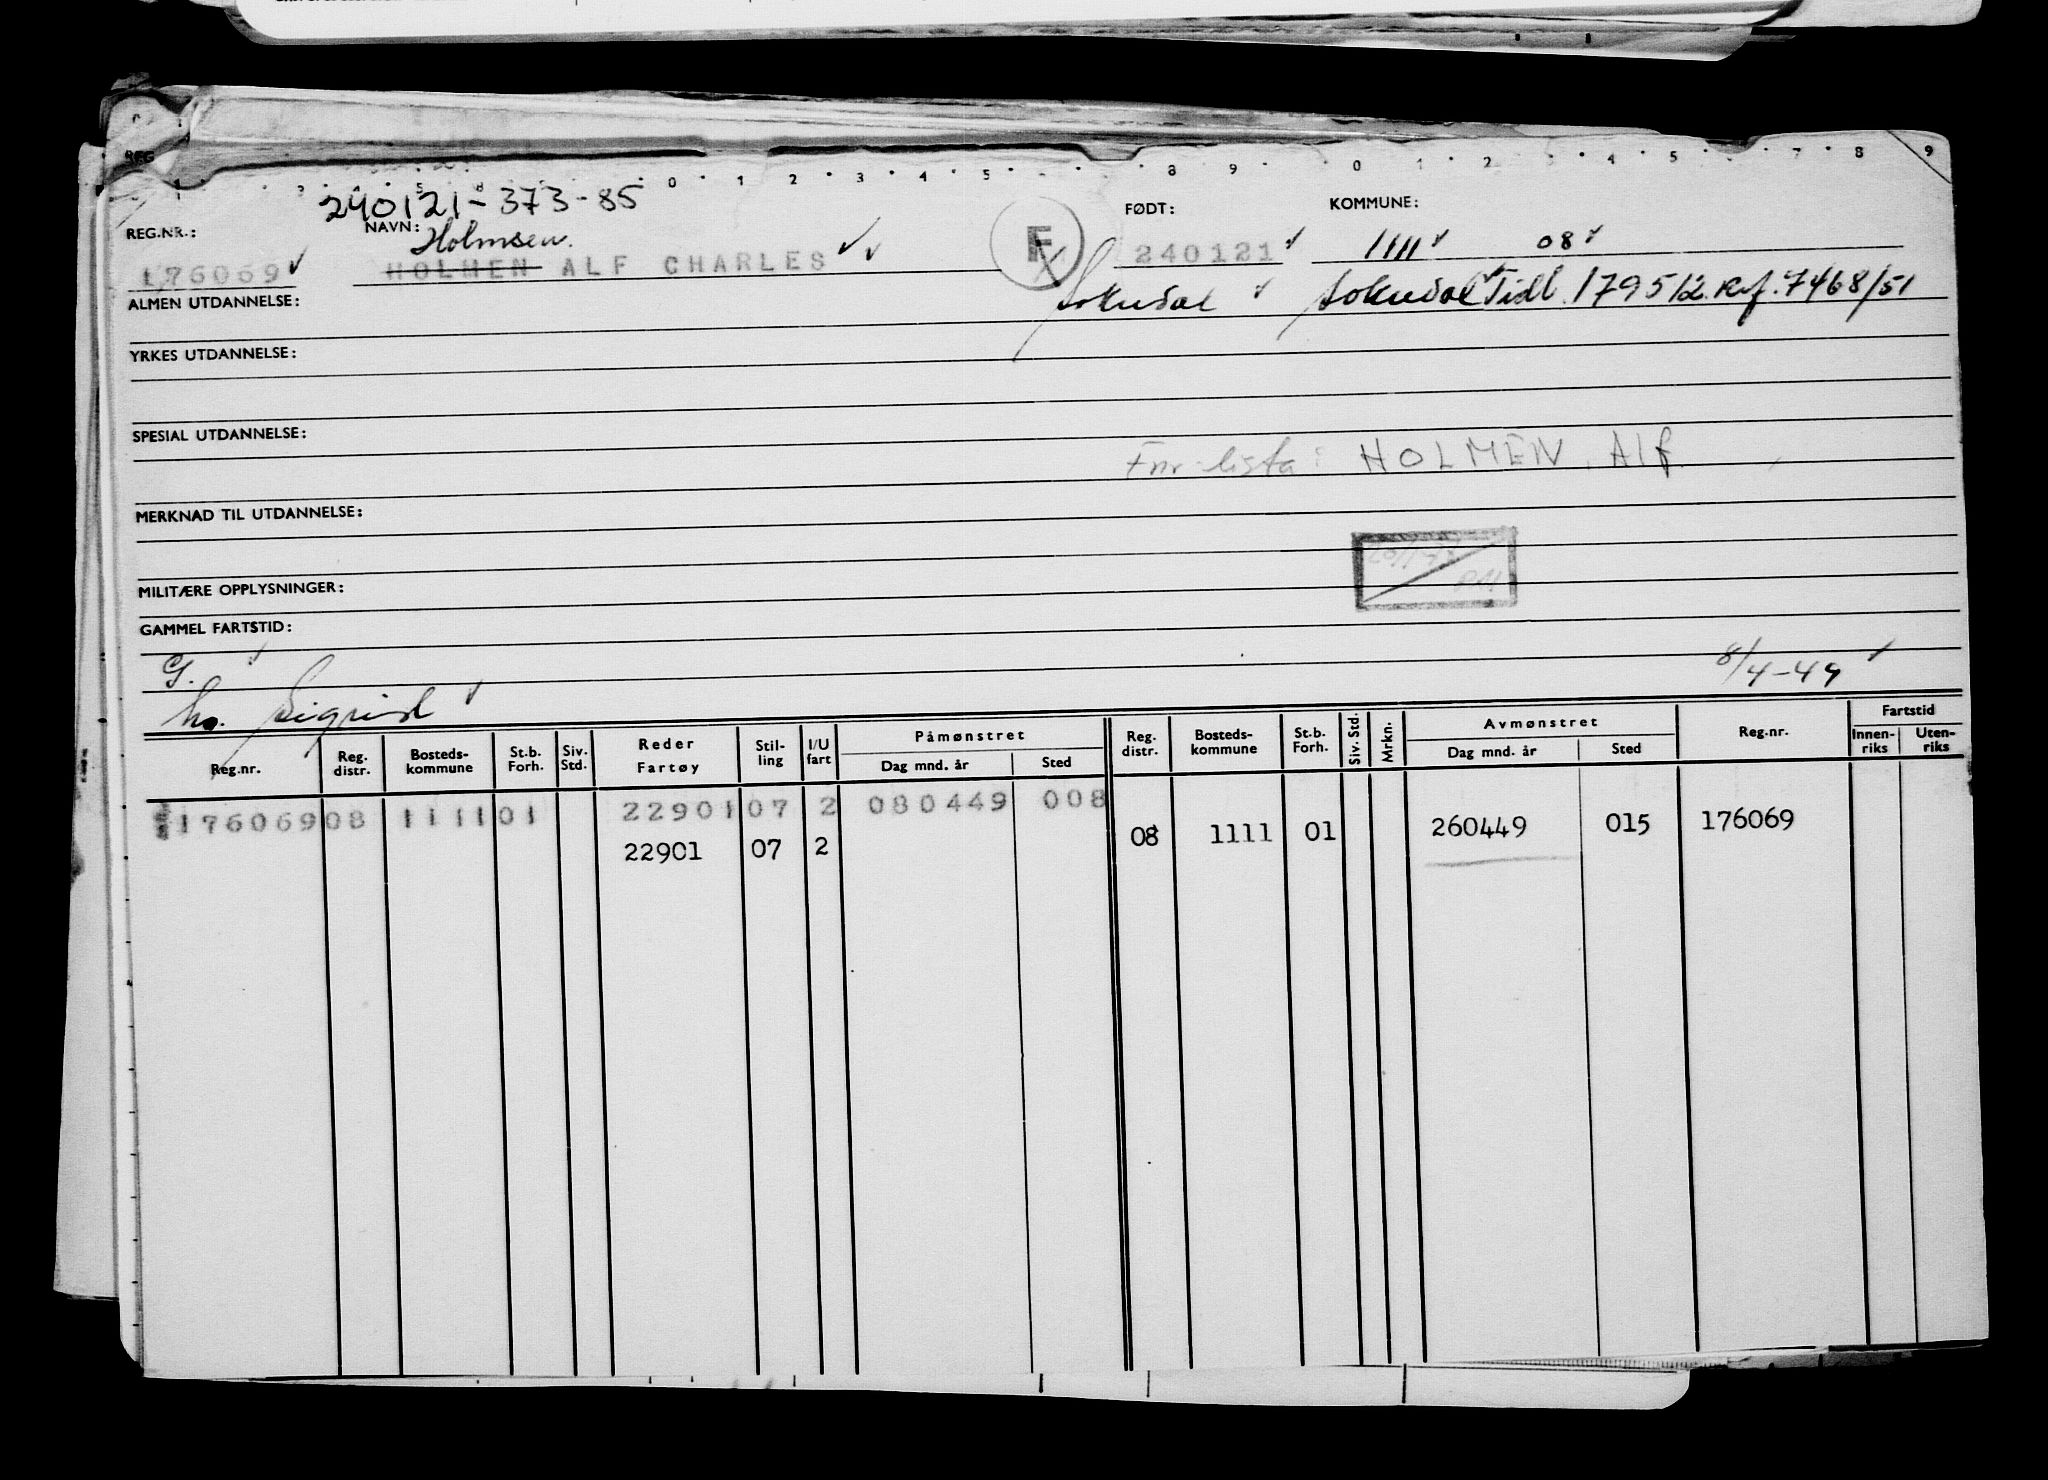 REG
240121-373-85
REG.NR.: NAVN: FØDT: KOMMUNE:
Holmsen
176069 HOLMEN ALF CHARLES F 240121 1111 08
Sokndal Sokndal Tidl. 179512. Ref. 7468/51
ALMEN UTDANNELSE:
YRKES UTDANNELSE:
SPESIAL UTDANNELSE:
Fnr-lista: HOLMEN, Alf
MERKNAD TIL UTDANNELSE:
MILITÆRE OPPLYSNINGER:
GAMMEL FARTSTID:
G. 8/4-49
Sigrid
Reg.nr. Reg. distr. Bosteds-kommune St.b. Forh. Siv. Std. Reder Fartøy Stil-ling I/U fart Påmønstret Dag mnd. år Sted Reg. distr. Bosteds-kommune St.b. Forh. Siv. Std. Mrkn. Avmønstret Dag mnd. år Sted Reg.nr. Fartstid Innen-riks Uten-riks
176069 08 1111 01 22901 07 2 080449 008
22901 07 2 08 1111 01 260449 015 176069